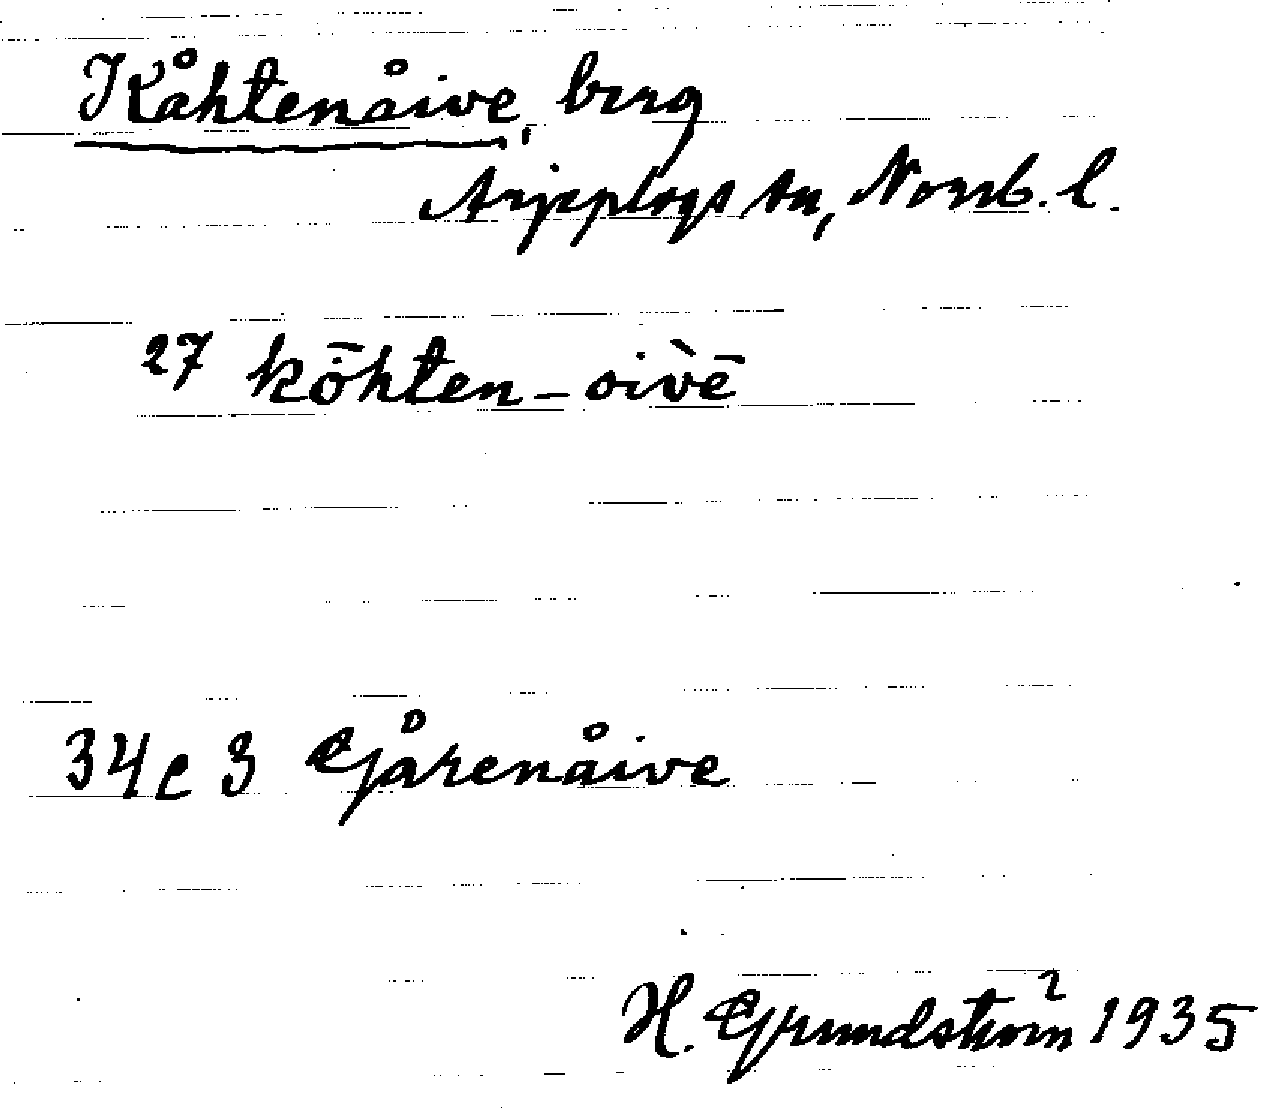 Kåhtenåive, berg
Arjeplogs sn, Norrb. l.
27 kō̇hten-oi̇̀vē
34 c 3 Gjårenåive
H. Grundström 1935